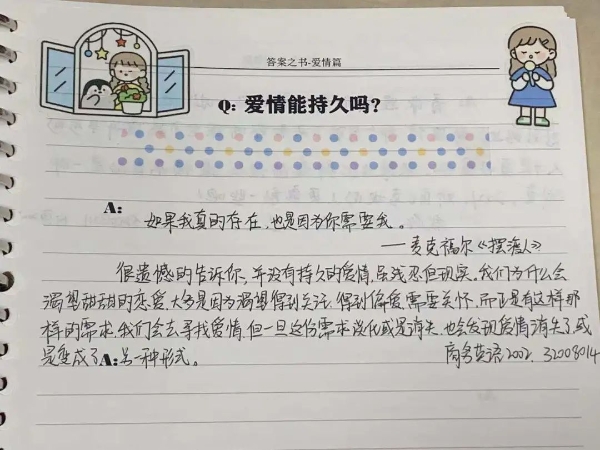 答案之书-爱情篇
Q: 爱情能持久吗?
A:
如果我真的存在,也是因为你需要我。
——麦克福尔《摆渡人》
很遗憾的告诉你,并没有持久的爱情,虽残忍但现实。我们为什么会
渴望甜甜的恋爱,大多是因为渴望得到关注,得到偏爱,需要关怀。而正是有这样那
样的需求,我们会去寻找爱情,但一旦这份需求淡化或是消失,也会发现爱情消失了,或
是变成了A:另一种形式。
商务英语2002, 32008014